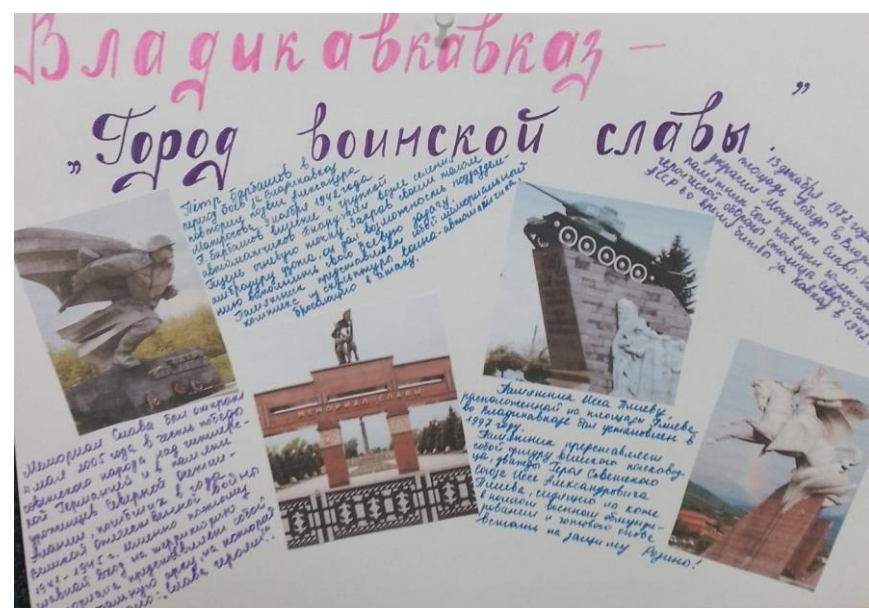 Владикавкавказ –
„Город воинской славы."
Пётр Барбашов в
период боёв за Владикавказ
повторил подвиг Александра
Матросова. 9 ноября 1942 года
П. Барбашов вместе с группой
автоматчиков
огневую точку. Закрыв своим телом
амбразуру дзота, он дал возможность подразделе-
нию выполнить свою боевую задачу.
Памятник представляет собой мемориальный
комплекс из скульптуры воина-автоматчика,
бросившего в атаку.
13 декабря 1982 года
площадь Победы
украсил Монумент Славы.
памятник был посвящен
героической обороны столицы Северо-
АССР во время битвы за Кавказ в 1942
МЕМОРИАЛ СЛАВЫ
Мемориал Слава был открыт
мая 2005 года в честь победы
советского народа над гитлеро-
кой Германией и в память
уроженцев Северной Осетии-
Алании, погибших в годы
Великой отечественной войны
1941-1945 г. Именно поэтому
главный вход на территорию
представляет собой
арку, на которой
„Слава героям".
Памятник Исса Плиеву,
расположенной на площади Плиева
во Владикавказе был установлен в
1997 году.
Памятник представляет
собой фигуру воинского полковод-
ца, дважды Героя Советского
Союза Иссе Александровича
Плиева, сидящего на коне
в полном военном обмунди-
ровании и готового снова
встать на защиту Родины!